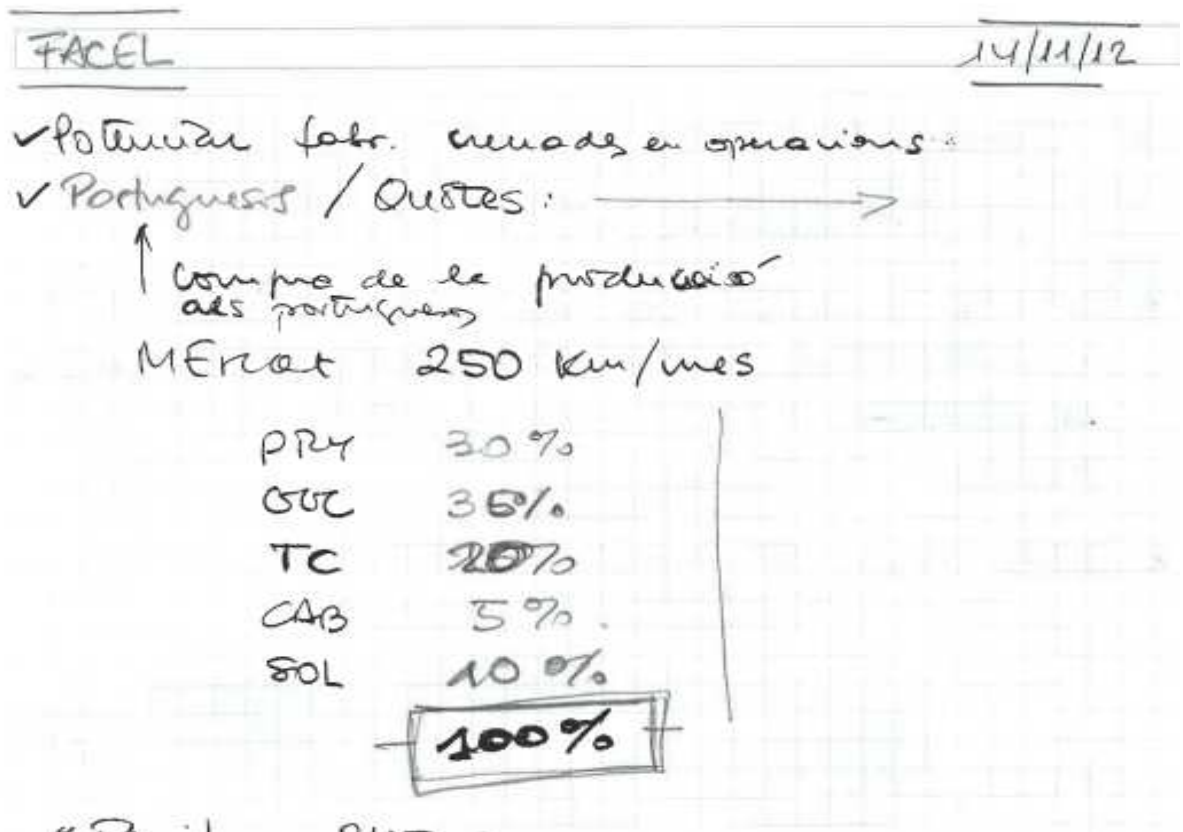 FACEL 14/11/12
✓ Potencian fabr. en operacions.
✓ Portuguesos / Quotes: →
↑ compra de la producció
als portuguesos
MErcat 250 Km/mes
PRY 30%
GUC 35%
TC 20%
CAB 5%
SOL 10%
100%